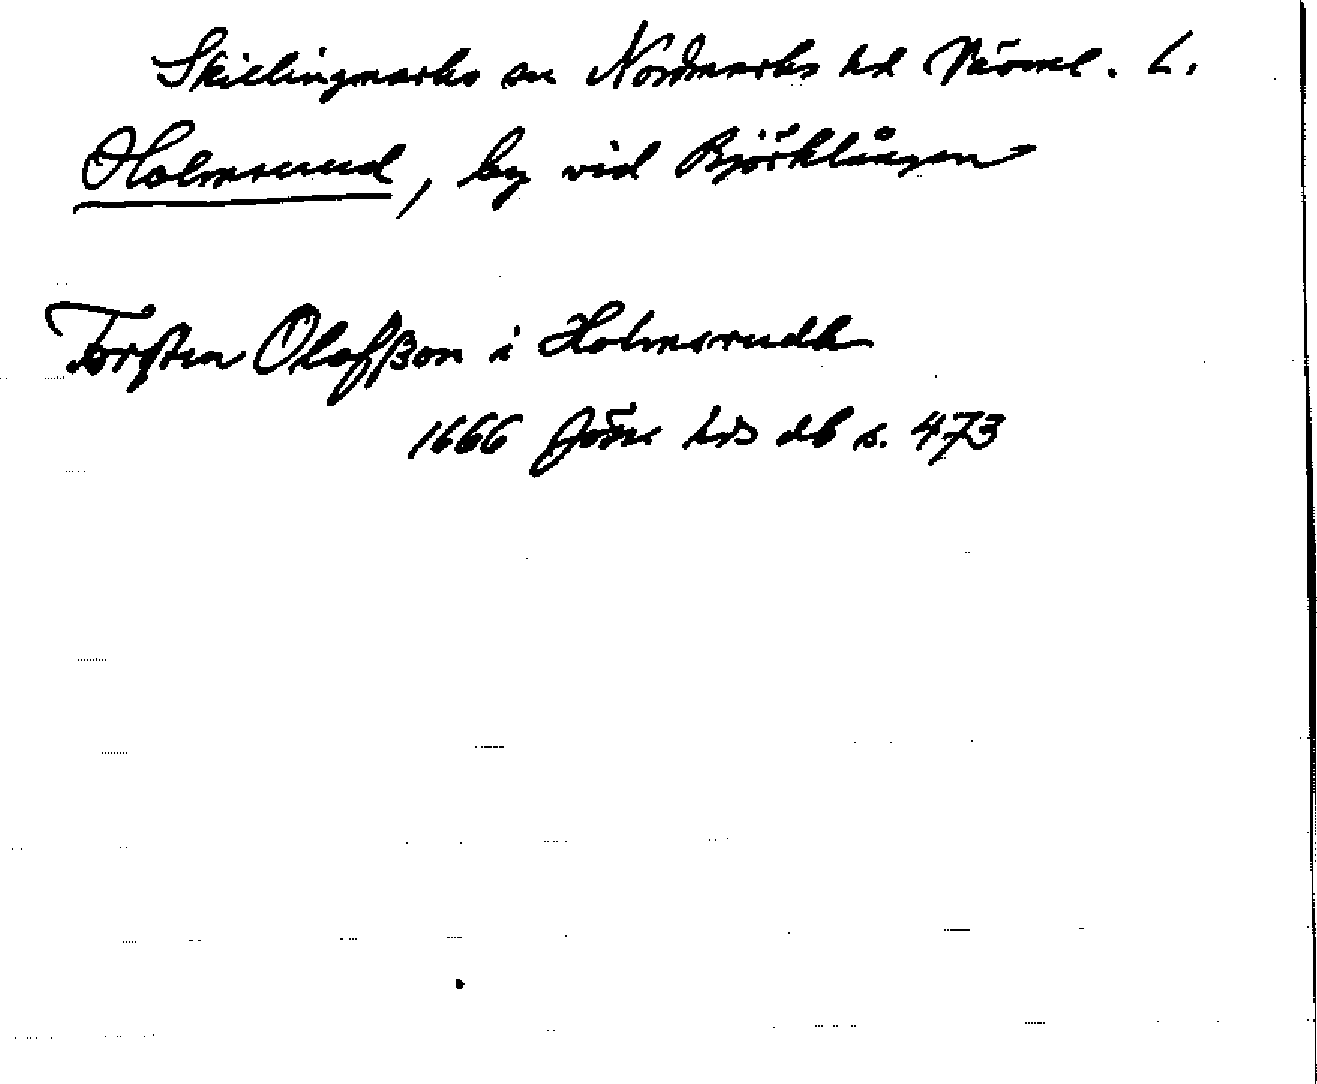 Skillingmarks sn Nordmarks hd Värml. L.
Holmsrud, by vid Björklången
Torsten Olafßon i Holmsrudh
1666 Jösse hds db s. 473